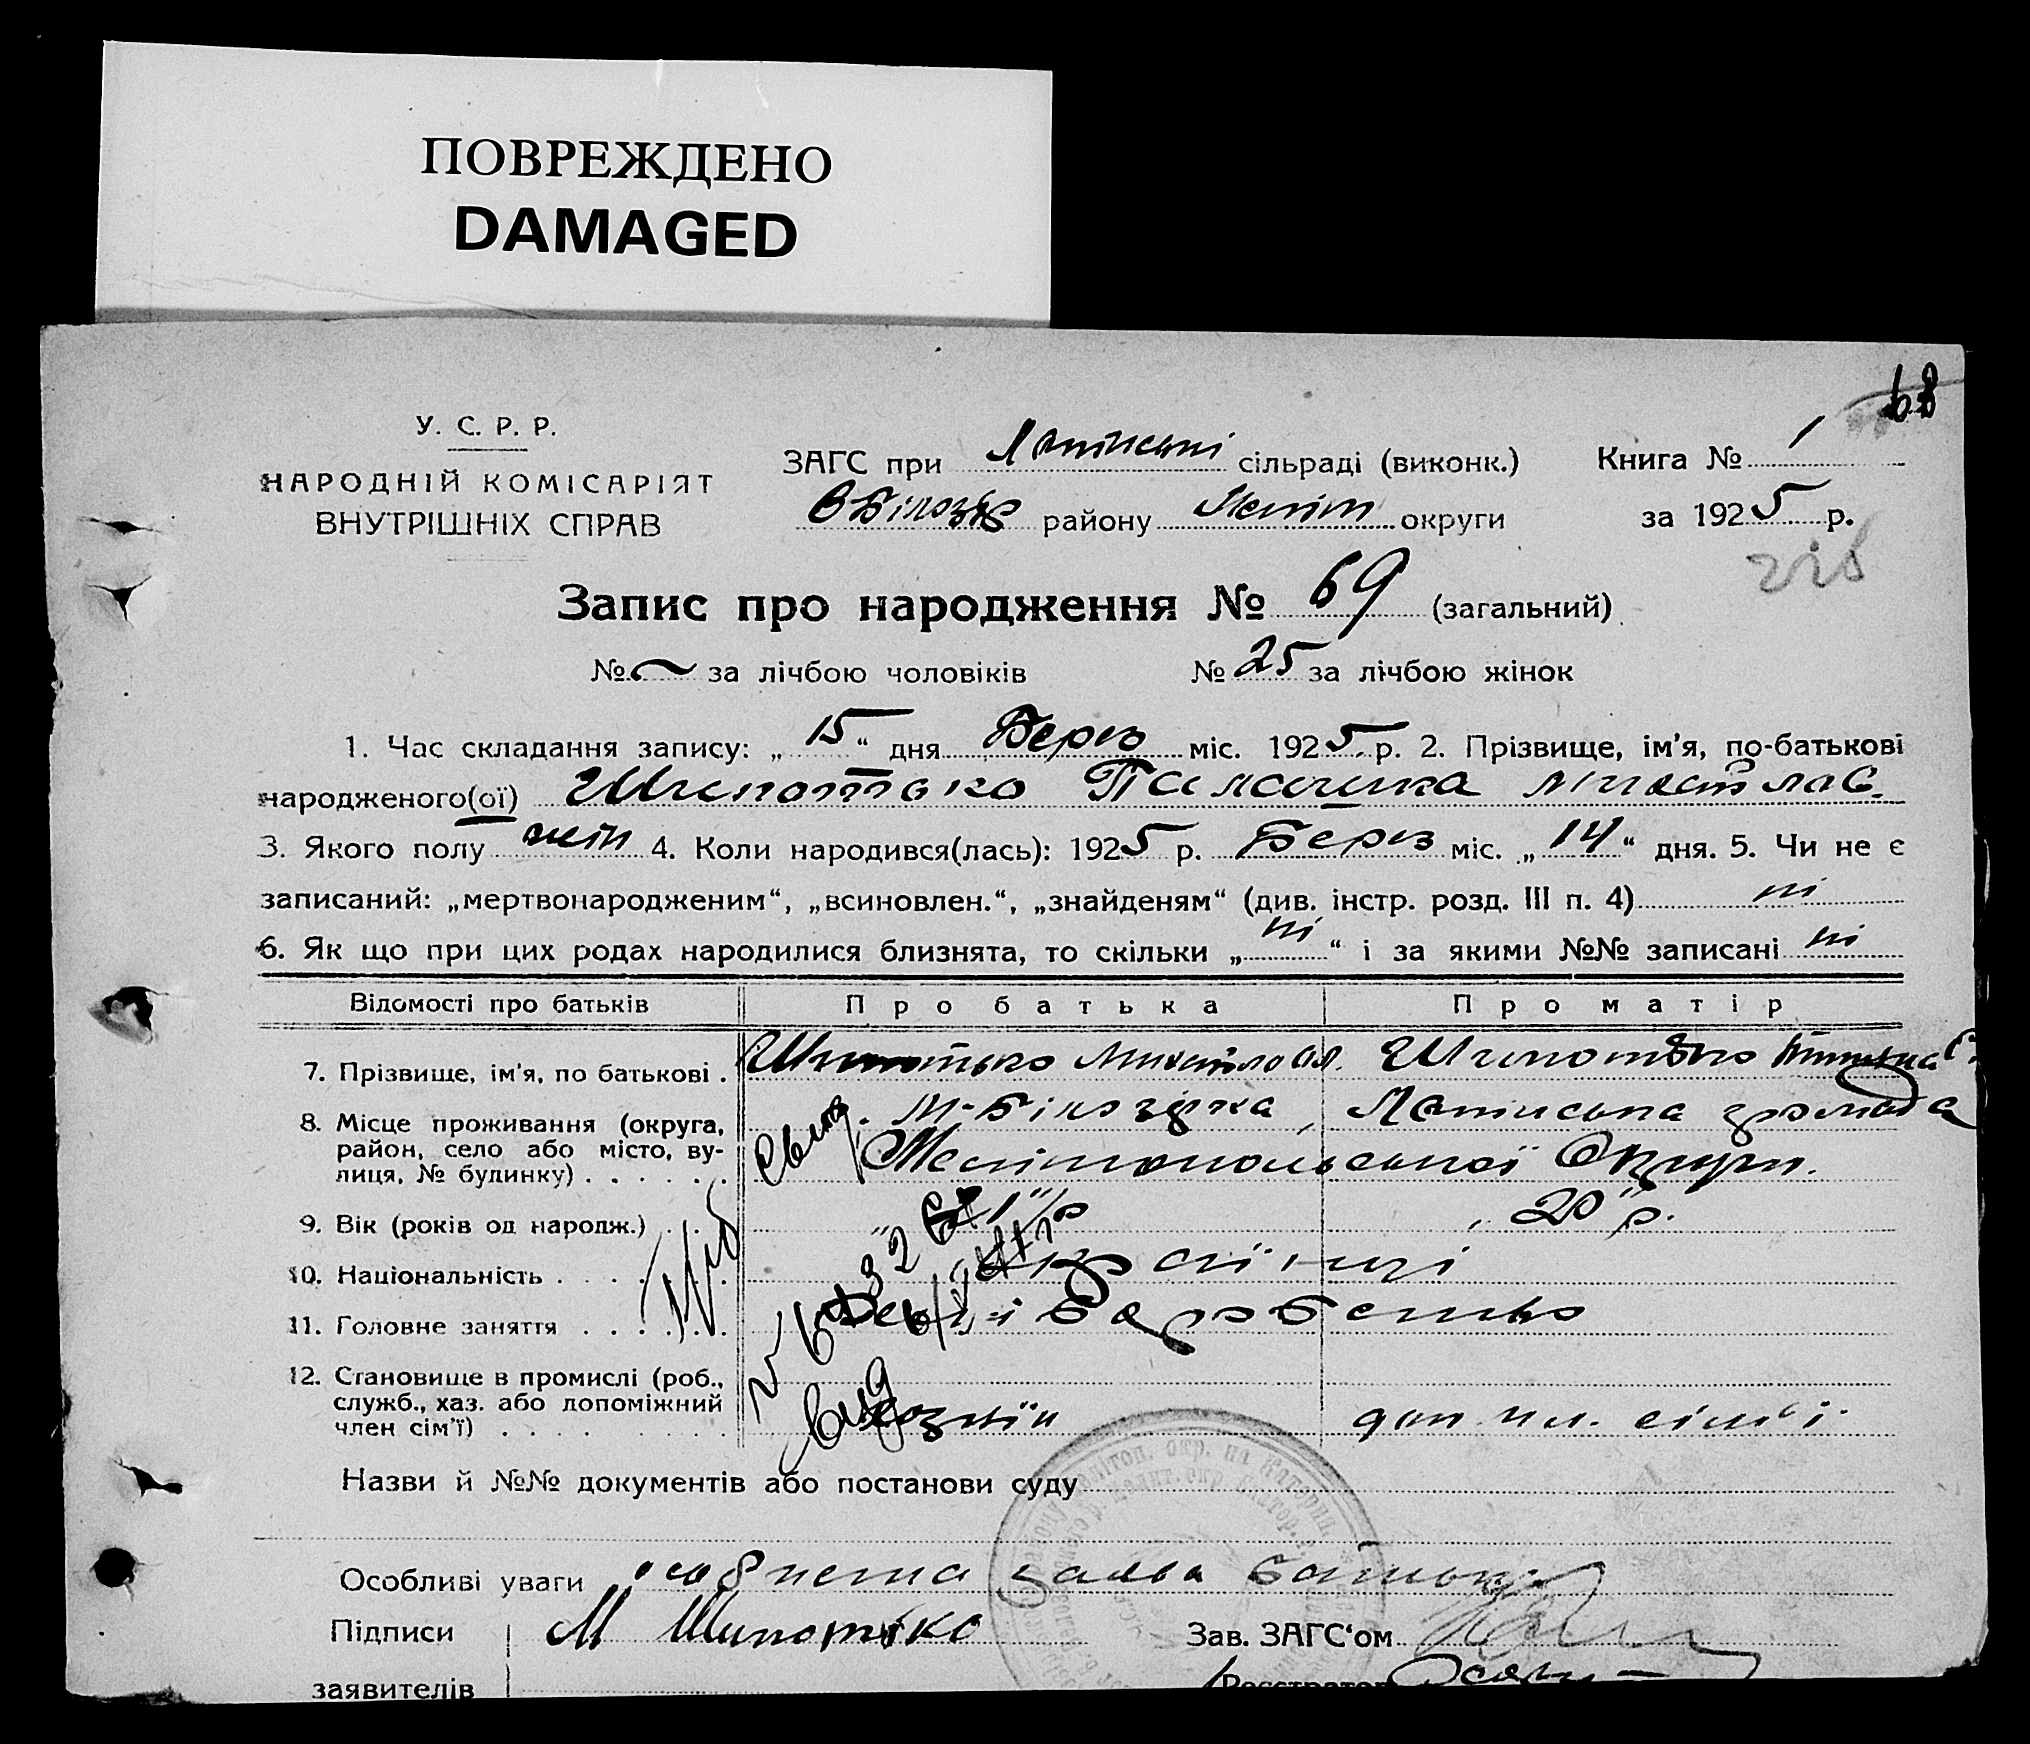 ПОВРЕЖДЕНО
DAMAGED
68
У. С. Р. Р.
НАРОДНІЙ КОМІСАРІЯТ
ВНУТРІШНІХ СПРАВ
ЗАГС при сільраді (виконк.)
району Меліт округи
Книга № 1
за 1925 р.
Запис про народження № 69 (загальний)
№ за лічбою чоловіків № 25 за лічбою жінок
1. Час складання запису: „ 15 “ дня Берез міс. 1925 р. 2. Прізвище, ім'я, по-батькові
народженого(ої) Шипотько Палашка
3. Якого полу жін 4. Коли народився(лась): 1925 р. Берез міс. „ 14 “ дня. 5. Чи не є
записаний: „мертвонародженим“, „всиновлен.“, „знайденям“ (див. інстр. розд. III п. 4) ні
6. Як що при цих родах народилися близнята, то скільки „ ні “ і за якими №№ записані ні
Відомості про батьків Про батька Про матір
7. Прізвище, ім'я, по батькові . Шипотько Михайло Шипотько
8. Місце проживання (округа,
район, село або місто, ву-
лиця, № будинку) . . . . . .
М-Білозірка, громада
Мелітопольської Округи.
9. Вік (років од народж.) . . . „ 20 “ р.
10. Національність . . . . Українці
11. Головне заняття . . . . . . . Хліборобство
12. Становище в промислі (роб.,
служб., хаз. або допоміжний
член сім'ї) . . . . . . . .
хозяїн доп. чл. сім'ї
Назви й №№ документів або постанови суду
Особливі уваги заява батька
Підписи М Шипотько Зав. ЗАГС‘ом
заявителів Реєстратор